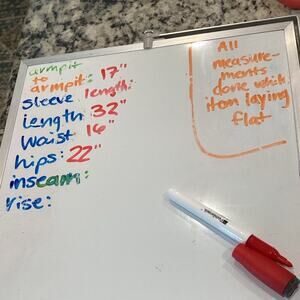 armpit
to
armpit: 17"
Sleeve length:
Length 32"
Waist 16"
hips: 22"
inseam:
rise:
All
measure-
ments
done which
item laying
flat